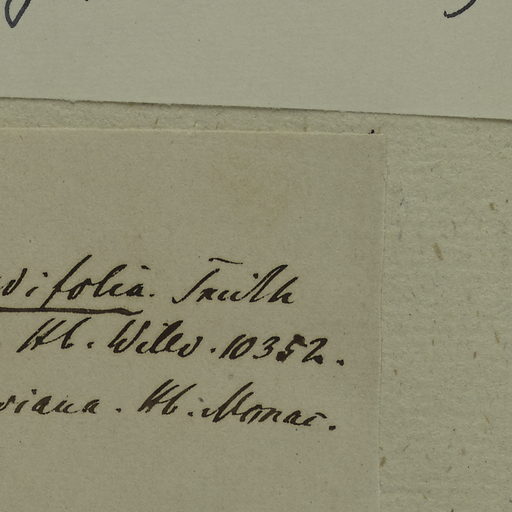 difolia. Smith
Hb. Willd. 10352.
viana. Hb. Monac.